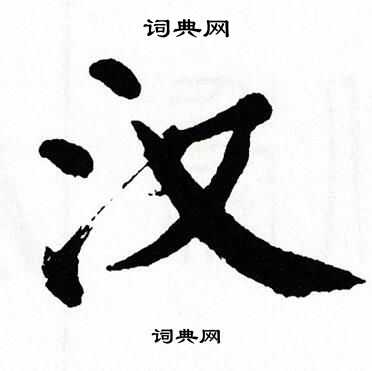 词典网
汉
词典网